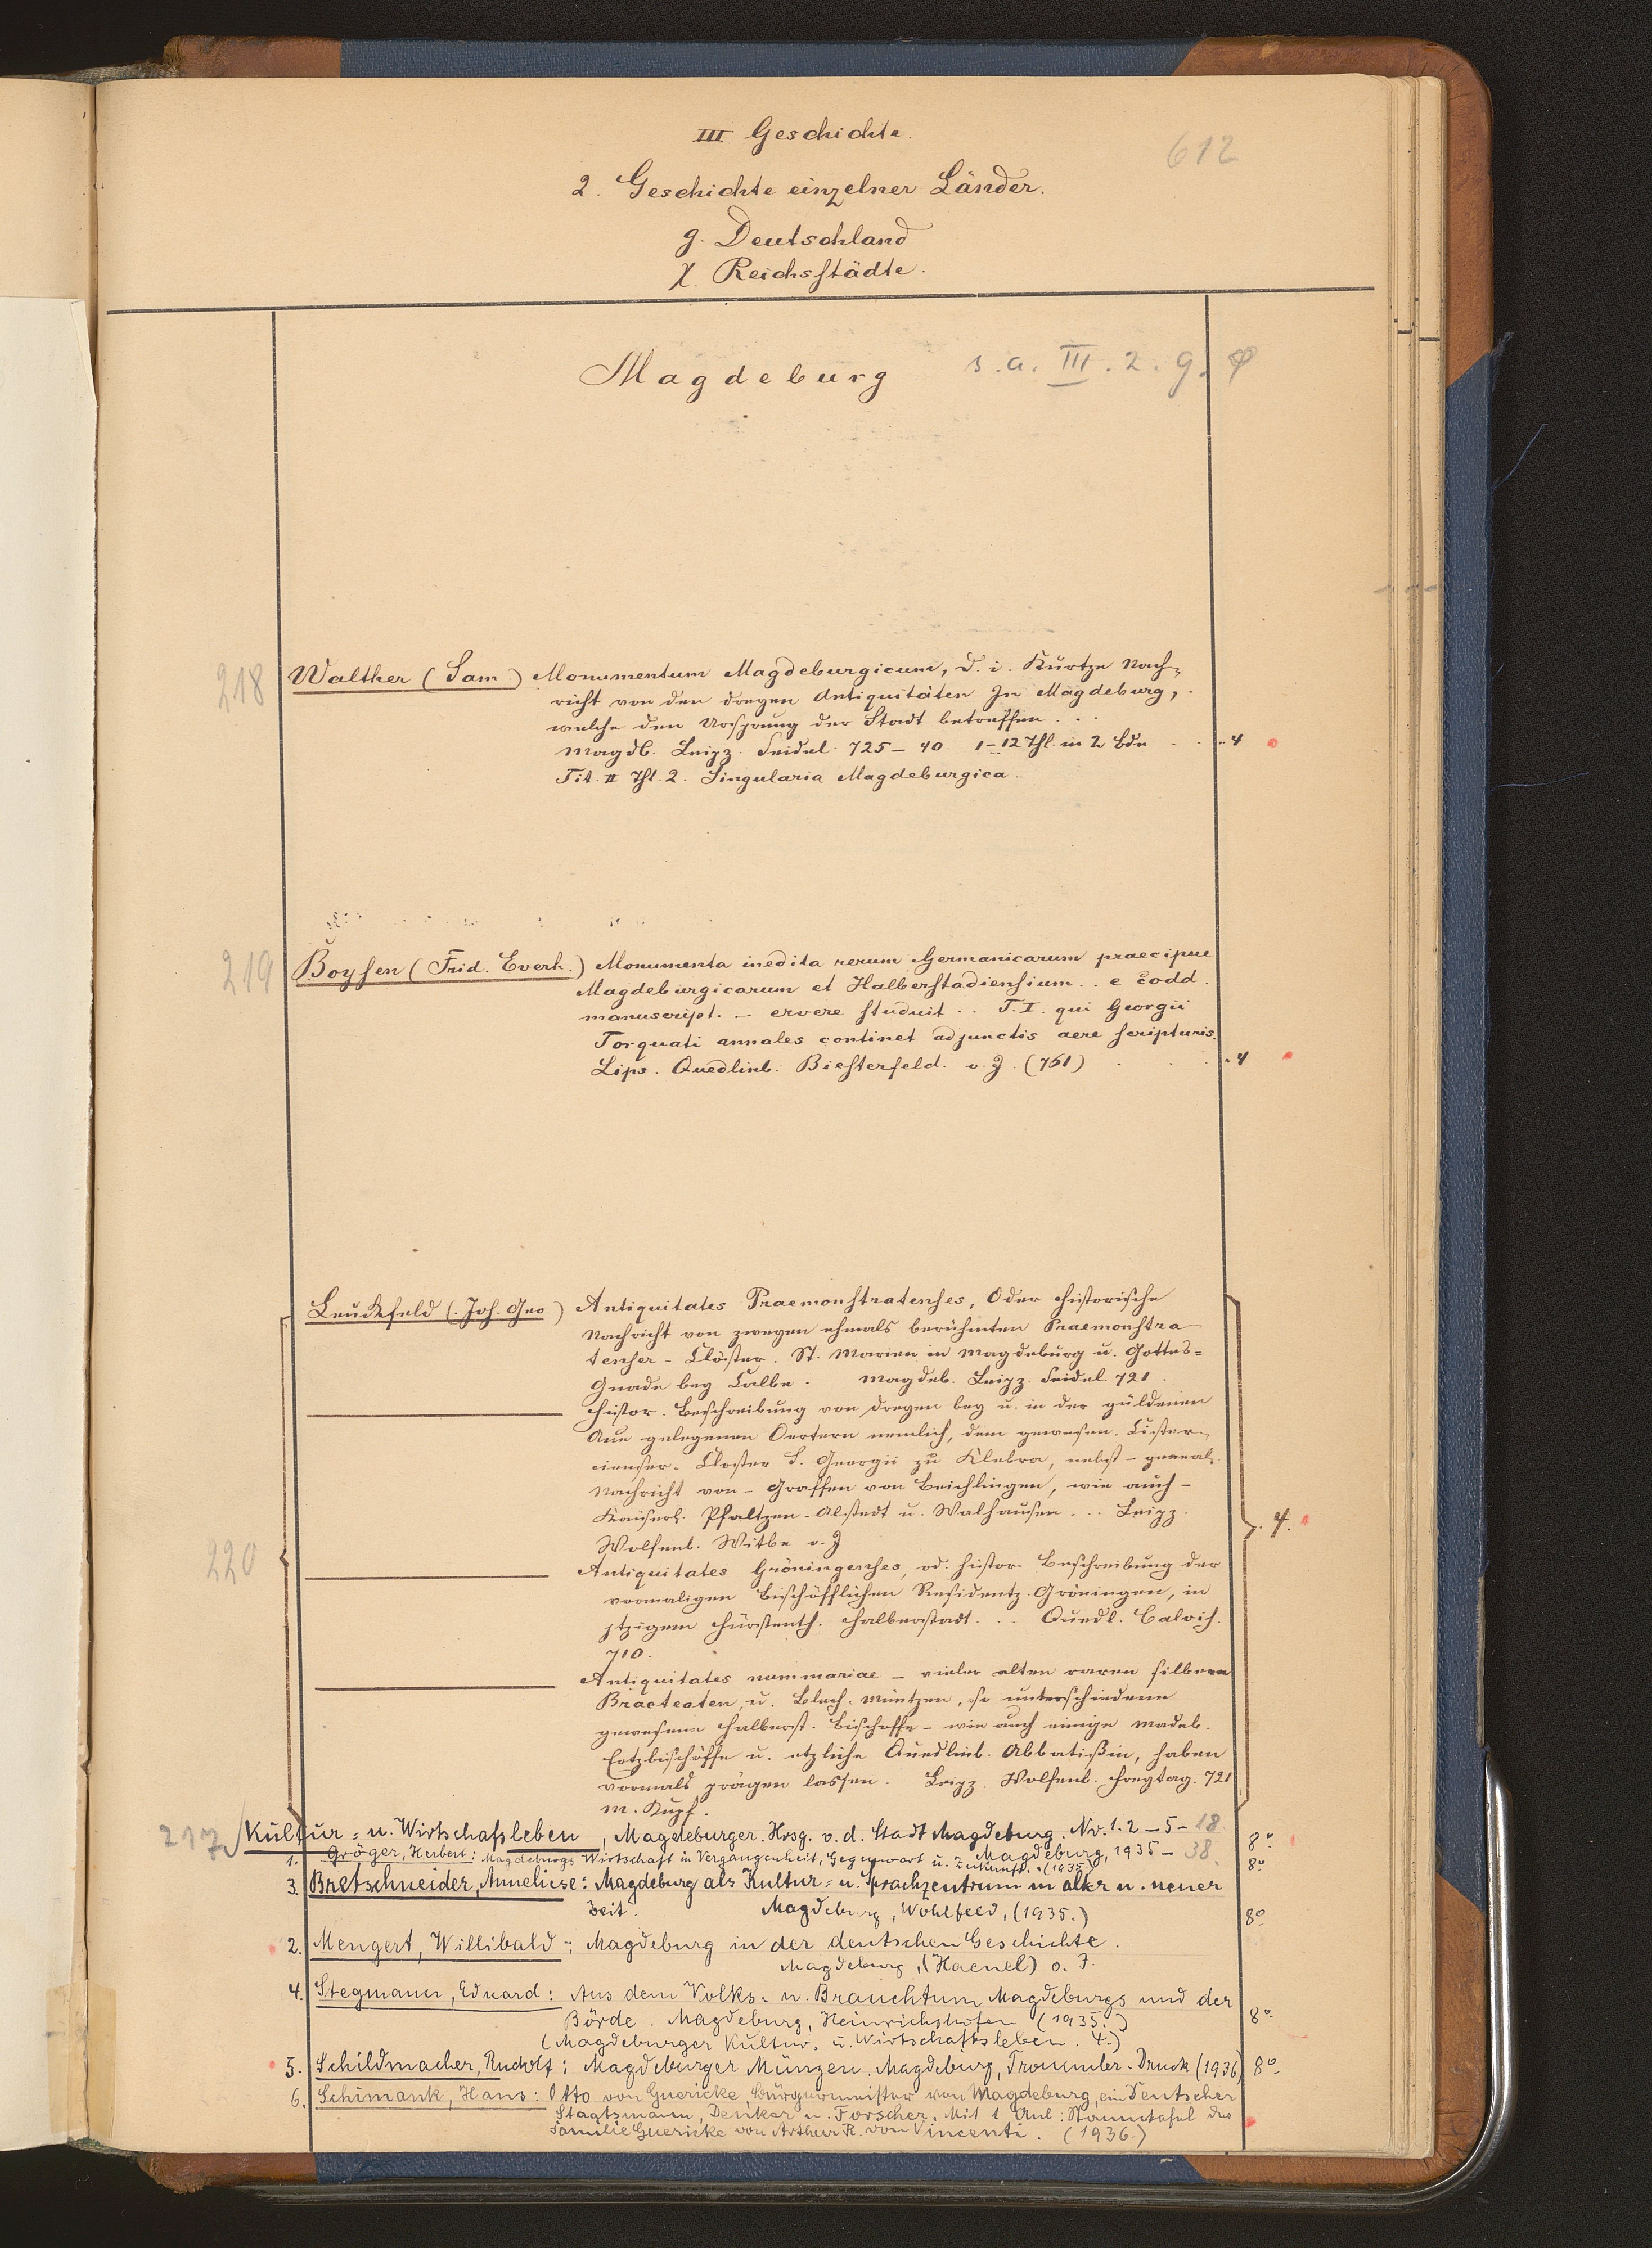 III Geschichte.
612
2. Geschichte einzelner Länder.
g. Deutschland
χ. Reichsstädte.
Magdeburg s. a. III. 2. g. φ
218 Walther (Sam.) Monumentum Magdeburgicum, d. i. Kurtze Nach=
richt von den dreyen Antiquitäten In Magdeburg,
welche den Ursprung der Stadt betreffen...
Magdb. Leipz. Seidel. 725–40. 1–12 Thl. in 2 Bdn . . 4
Tit. II Thl. 2. Singularia Magdeburgica.
219 Boysen (Frid. Everh.) Monumenta inedita rerum Germanicarum praecipue
Magdeburgicarum et Halberstadiensium.. e codd.
manuscript. – ervere studuit.. T. I. qui Georgii
Torquati annales continet adjunctis aere scripturis.
Lips. Quedlinb. Biesterfeld. o. J. (761) . . . 4
Leuckfeld (Joh. Geo) Antiquitates Praemonstratenses, Oder historische
Nachricht von zweyen ehmals berühmten Praemonstra-
tenser-Clöster. St. Marien in Magdeburg u. Gottes=
Gnade bey Calbe. Magdeb. Leipz. Seidel. 721.
Histor. Beschreibung von dreyen bey u. in der güldenen
Aue gelegenen Oertern nemlich, dem gewesen. Cister-
cienser-Closter S. Georgii zu Kelbra, nebst – geneal.
Nachricht von – Graffen von Beichlingen, wie auch –
Kaiserl. Pfaltzen-Alstedt u. Walhausen... Leipz. 4.
Wolfenb. Witbe o. J
220 Antiquitates Gröningenses, od. histor. Beschreibung der
vormaligen Bischöfflichen Residentz Gröningen, in
jtzigem Fürstenth. Halberstadt... Quedl. Calvis.
710.
Antiquitates nummariae – vieler alten raren silbern
Bracteaten u. Blech-Müntzen, so unterschiedene
gewesene Halberst. Bischoffe – wie auch einige Madeb.
Ertzbischöffe u. etzliche Quedlinb. Abbatißin, haben
vormals prägen lassen. Leipz. Wolfenb. Freytag. 721
m. Kupf.
217 Kultur= u. Wirtschafsleben, Magdeburger. Hrsg. v. d. Stadt Magdeburg. Nr. 1. 2–5–18.
Magdeburg, 1935–38. 8°.
1. Gröger, Herbert: Magdeburgs Wirtschaft in Vergangenheit, Gegenwart u. Zukunft. (1935.) 8°
3. Bretschneider, Anneliese: Magdeburg als Kultur= u. Sprachzentrum in alter u. neuer
Zeit. Magdeburg, Wohlfeld, (1935.) 8°.
2. Mengert, Willibald: Magdeburg in der deutschen Geschichte.
Magdeburg, (Haenel) o. J.
4. Stegmann, Eduard: Aus dem Volks= u. Brauchtum Magdeburgs und der
Börde. Magdeburg, Heinrichshofen (1935.) 8°.
(Magdeburger Kultur= u. Wirtschaftsleben. 4.)
5. Schildmacher, Rudolf: Magdeburger Münzen. Magdeburg, Trommler-Druck (1936) 8°.
6. Schimank, Hans: Otto von Guericke Bürgermeister von Magdeburg, ein deutscher
Staatsmann, Denker u. Forscher. Mit 1 Anl: Stammtafel der
Familie Guericke von Arthur R. von Vincenti. (1936.)